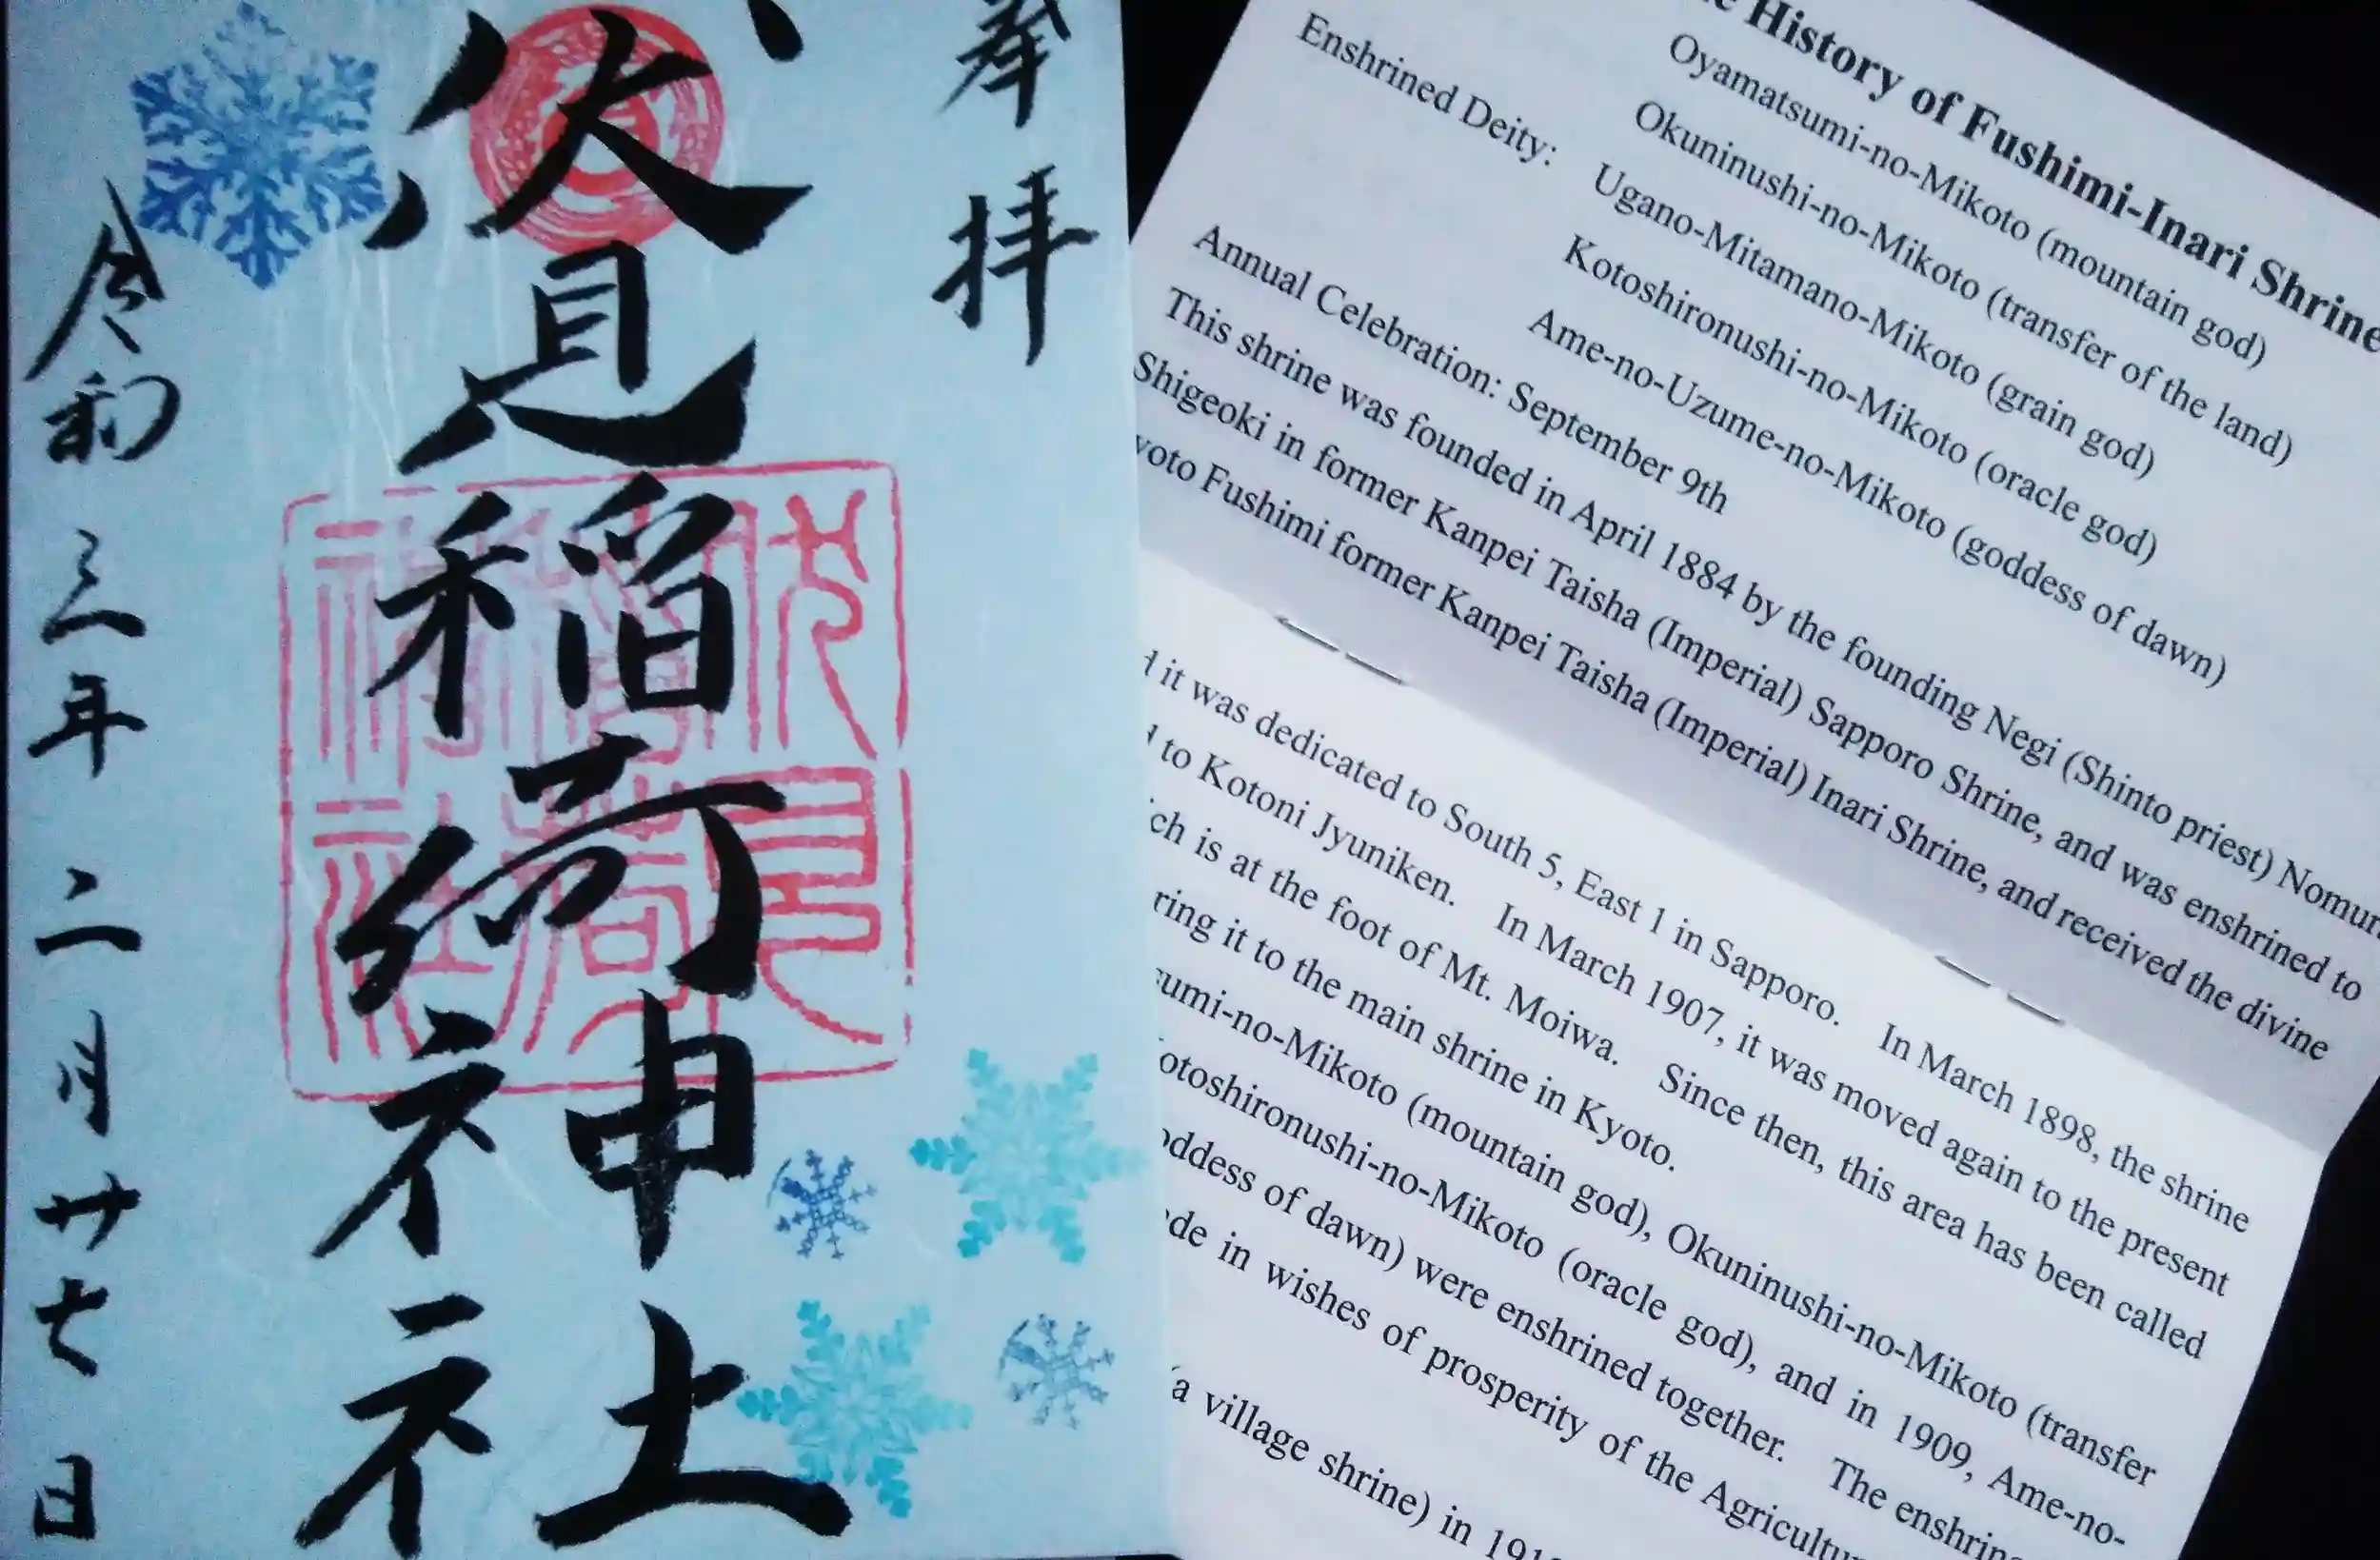 奉拝
伏見稲荷神社
令和三年二月廿七日
History of Fushimi-Inari Shrine
Oyamatsumi-no-Mikoto (mountain god)
Okuninushi-no-Mikoto (transfer of the land)
Enshrined Deity: Ugano-Mitamano-Mikoto (grain god)
Kotoshironushi-no-Mikoto (oracle god)
Ame-no-Uzume-no-Mikoto (goddess of dawn)
Annual Celebration: September 9th
This shrine was founded in April 1884 by the founding Negi (Shinto priest)
Shigeoki in former Kanpei Taisha (Imperial) Sapporo Shrine, and was enshrined to
Fushimi former Kanpei Taisha (Imperial) Inari Shrine, and received the divine
it was dedicated to South 5, East 1 in Sapporo. In March 1898, the shrine
to Kotoni Jyuniken. In March 1907, it was moved again to the present
is at the foot of Mt. Moiwa. Since then, this area has been called
it to the main shrine in Kyoto.
(mountain god), Okuninushi-no-Mikoto (transfer
(oracle god), and in 1909, Ame-no-
of dawn) were enshrined together. The
in wishes of prosperity of the
a village shrine) in